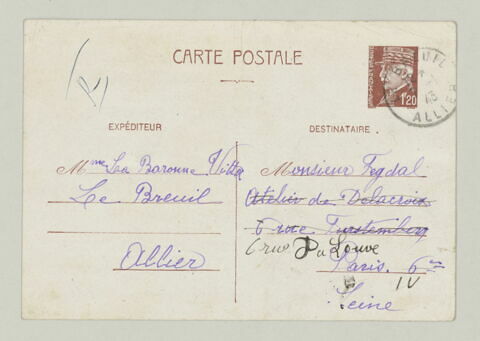 CARTE POSTALE
1,20
ALLIER
EXPÉDITEUR
Mme La Baronne Vitta
Le Breuil
Allier
DESTINATAIRE
Monsieur Fegdal
Atelier de Delacroix
6 rue Furstemberg
6 rue Du Louve
Paris. 6em
IV
Seine